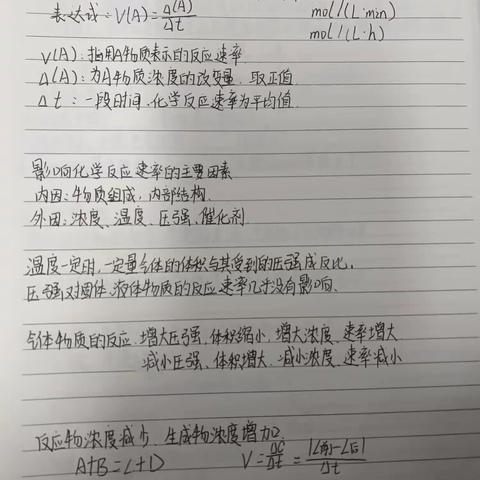 表达式：V(A)=Δ(A)/Δt
mol/(L·min)
mol/(L·h)
V(A)：指用A物质表示的反应速率
Δ(A)：为A物质浓度的改变量，取正值.
Δt：一段时间，化学反应速率为平均值.
影响化学反应速率的主要因素
内因：物质组成，内部结构.
外因：浓度、温度、压强、催化剂.
温度一定时，一定量气体的体积与其受到的压强成反比，
压强对固体、液体物质的反应速率几乎没有影响、
气体物质的反应，增大压强，体积缩小，增大浓度，速率增大
减小压强、体积增大，减小浓度，速率减小
反应物浓度减少，生成物浓度增加
A+B=C+D V=ΔC/Δt=|C前-C后|/Δt